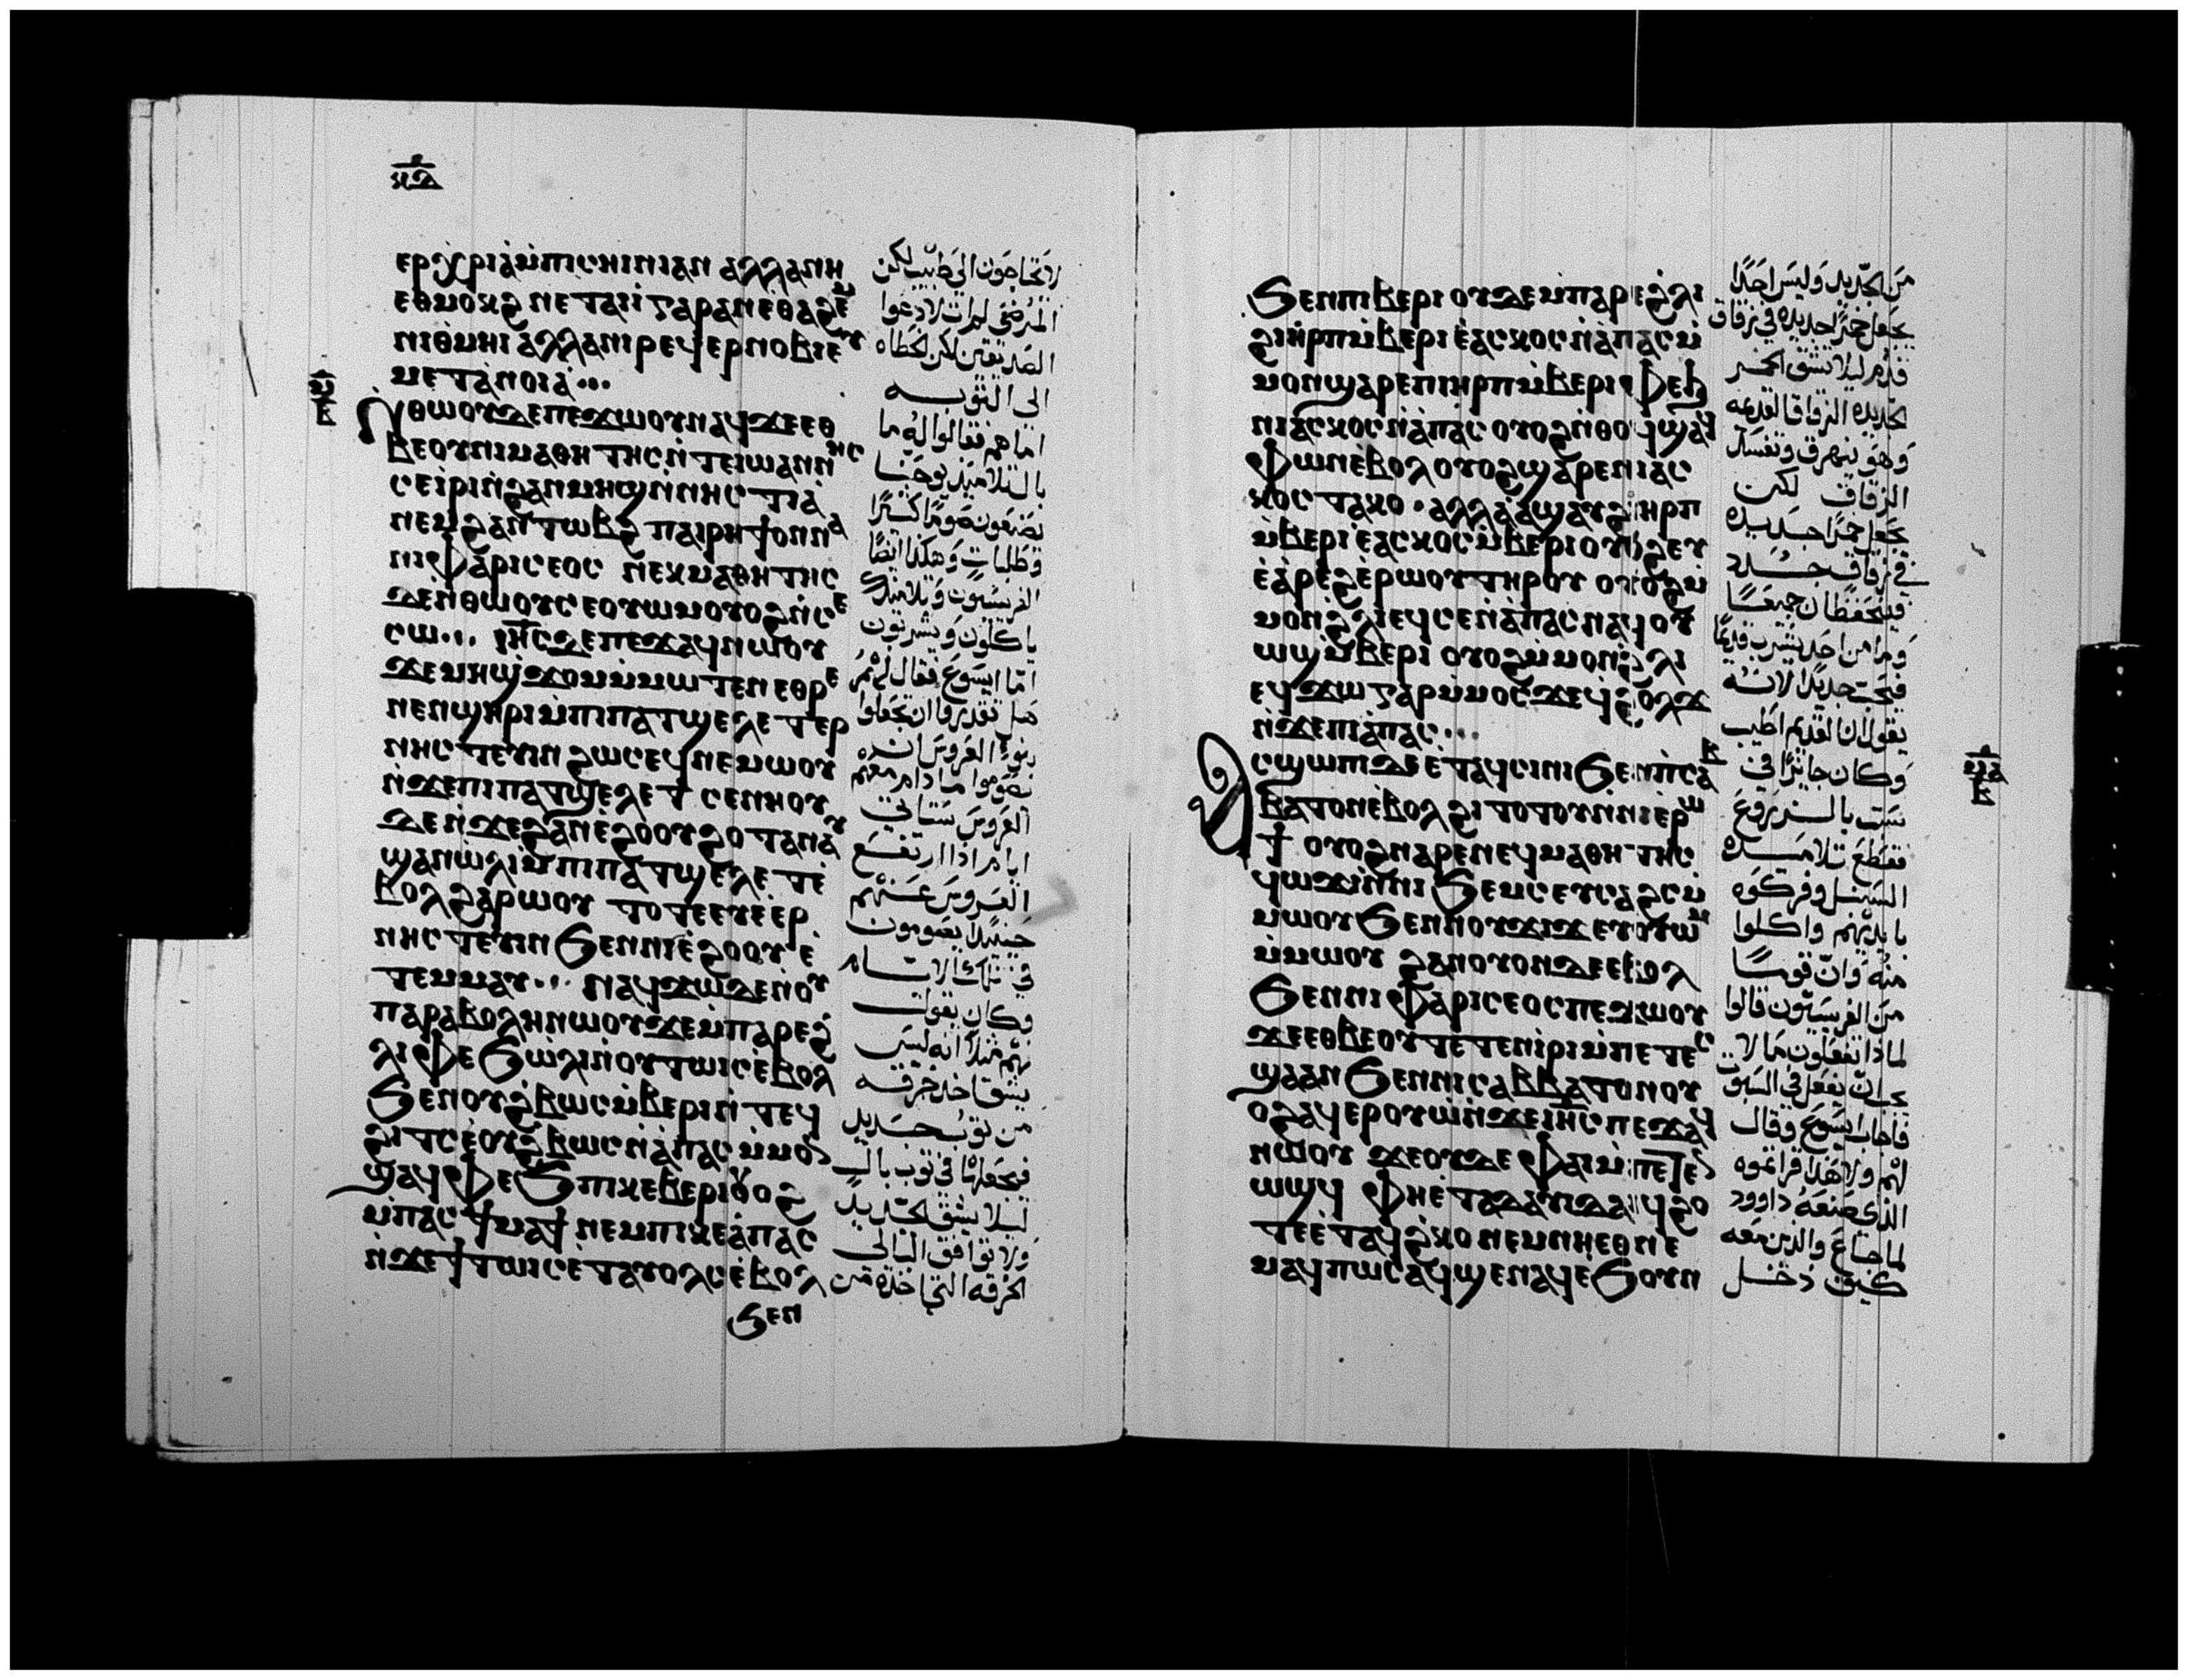 ⲕⲇ
ⲉⲣⲭⲣⲓⲁⲙⲡⲓⲥⲏⲓⲛⲓⲁⲛ ⲁⲗⲗⲁⲛⲏ
ⲉⲑⲙⲟⲕϩ ⲛⲉⲧⲁⲓⲓ ⲅⲁⲣⲁⲛⲉⲑⲁϩⲉⲙ
ⲛⲓⲑⲙⲏⲓ ⲁⲗⲗⲁⲛⲓⲣⲉϥⲉⲣⲛⲟⲃⲓⲉⲩ
ⲙⲉⲧⲁⲛⲟⲓⲁ...
ⲛⲑⲱⲟⲩⲇⲉⲡⲉϫⲱⲟⲩⲛⲁϥϫⲉⲉⲑ
ⲃⲉⲟⲩⲛⲓⲙⲁⲑⲏⲧⲏⲥⲛⲧⲉⲓⲱⲁⲛⲛⲏⲥ
ⲥⲉⲓⲣⲓⲛϩⲁⲛⲙⲏϣⲛⲛⲏⲥⲧⲓⲁ
ⲛⲉⲙϩⲁⲛⲧⲱⲃϩ ⲡⲁⲓⲣⲏϯⲟⲛⲛⲁ
ⲛⲓⲫⲁⲣⲓⲥⲉⲟⲥ ⲛⲉⲕⲙⲁⲑⲏⲧⲏⲥ
ⲇⲉⲛⲑⲱⲟⲩⲥⲉⲟⲩⲱⲙⲟⲩⲟϩⲛⲥⲉ
ⲥⲱ... ⲓⲏⲥⲇⲉⲡⲉϫⲁϥⲛⲱⲟⲩ
ϫⲉⲙⲏϣϫⲟⲙⲙⲙⲱⲧⲉⲛⲉⲑⲣⲉ
ⲛⲉⲛϣⲏⲣⲓⲙⲡⲓⲡⲁⲧϣⲉⲗⲉⲧⲉⲣ
ⲛⲏⲥⲧⲉⲩⲓⲛ ϩⲱⲥⲉϥⲛⲉⲙⲱⲟⲩ
ⲛϫⲉⲡⲓⲡⲁⲧϣⲉⲗⲉⲧ ⲥⲉⲛⲏⲟⲩ
ⲇⲉⲛϫⲉϩⲁⲛⲉϩⲟⲟⲩϩⲟⲧⲁⲛⲁⲩ
ϣⲁⲛⲱⲗⲓⲙⲡⲓⲡⲁⲧϣⲉⲗⲉⲧⲉ
ⲃⲟⲗϩⲁⲣⲱⲟⲩ ⲧⲟⲧⲉⲉⲩⲉⲉⲣ
ⲛⲏⲥⲧⲉⲩⲓⲛ ϧⲉⲛⲛⲓⲉϩⲟⲟⲩⲉ
ⲧⲉⲙⲙⲁⲩ... ⲛⲁϥϫⲱⲇⲉⲛⲟⲩ
ⲡⲁⲣⲁⲃⲟⲗⲏⲛⲱⲟⲩϫⲉⲙⲡⲁⲣⲉϩ
ⲗⲓ ⲫⲉϧⲱⲗⲓⲛⲟⲩⲧⲱⲓⲥⲉⲃⲟⲗ
ϧⲉⲛⲟⲩϩⲃⲱⲥⲙⲃⲉⲣⲓⲛⲧⲉϥ
ϩⲓⲧⲥⲉⲟⲩϩⲃⲱⲥⲛⲁⲡⲁⲥⲙⲙⲟⲛ
ϣⲁϥⲫⲉϧⲡⲓⲕⲉⲃⲉⲣⲓⲟⲩⲟϩ
ⲙⲡⲁⲥϯⲙⲁϯ ⲛⲉⲙⲡⲓⲕⲉⲁⲡⲁⲥ
ⲛϫⲉϯⲧⲱⲓⲥⲉⲧⲁⲩⲟⲗⲥⲉⲃⲟⲗ
ϧⲉⲛ
لا يحتاجون الى طبيب لكن
المرضى لم ات لادعوا
الصديقين لكن الخطاه
الى التوبه
اما هم فقالوا له ما
بال تلاميذ يوحنا
يصنعون صوما كثيرا
وطلبات وهكذا ايضا
الفريسيون وتلاميذك
ياكلون ويشربون
اما ايسوع فقال لهم
هل تقدروا ان تجعلوا
بنو العروس ان
يصوموا ما دام معهم
العروس ستاتي
ايام اذا ارتفع
العروس عنهم
حينيذ يصومون
في تلك الايام
وكان يقول
لهم مثلا انه ليس
يشق احد خرقه
من ثوب جديد
فيجعلها في ثوب بالي
ليلا يشق الجديد
ولا توافق البالي
الخرقه التي اخذت من
ϧⲉⲛⲡⲓⲃⲉⲣⲓ ⲟⲩⲇⲉⲙⲡⲁⲣⲉϩⲗⲓ
ϩⲓⲏⲣⲡⲙⲃⲉⲣⲓ ⲉⲁⲥⲕⲟⲥⲛⲁⲡⲁⲥⲙ
ⲙⲟⲛϣⲁⲣⲉⲡⲓⲏⲣⲡⲙⲃⲉⲣⲓ ⲫⲉϧ
ⲛⲓⲁⲥⲕⲟⲥⲛⲁⲡⲁⲥ ⲟⲩⲟϩⲛⲑⲟϥϣⲁϥ
ⲫⲱⲛⲉⲃⲟⲗⲟⲩⲟϩϣⲁⲣⲉⲛⲓⲁⲥ
ⲕⲟⲥ ⲧⲁⲕⲟ. ⲁⲗⲗⲁϣⲁⲩϩⲓⲏⲣⲡ
ⲙⲃⲉⲣⲓ ⲉⲁⲥⲕⲟⲥⲙⲃⲉⲣⲓⲟⲩⲟϩⲉⲩ
ⲉⲁⲣⲉϩⲉⲣⲱⲟⲩⲧⲏⲣⲟⲩ ⲟⲩⲟϩⲙ
ⲙⲟⲛϩⲗⲓⲉϥⲥⲉⲛⲁⲡⲁⲥⲛⲁϥⲟⲩ
ⲱϣⲙⲃⲉⲣⲓ ⲟⲩⲟϩⲙⲙⲟⲛϩⲗⲓ
ⲉϥϫⲱ ⲅⲁⲣⲙⲙⲟⲥϫⲉϥϩⲟⲗϫ
ⲛϫⲉⲡⲓⲁⲡⲁⲥ...
ⲁⲥϣⲱⲡⲓⲇⲉⲉⲧⲁϥⲥⲓⲛⲓ ϧⲉⲛⲡⲥⲁⲃ
ⲃⲁⲧⲟⲛⲉⲃⲟⲗϩⲓⲧⲟⲧⲟⲩⲛⲛⲓⲉⲣⲱ
ϯ ⲟⲩⲟϩⲛⲁⲣⲉⲛⲉϥⲙⲁⲑⲏⲧⲏⲥ
ϥⲱϫⲓⲛⲛⲓ ϧⲉⲙⲥⲉⲩⲥⲁϩⲥⲙ
ⲙⲱⲟⲩϧⲉⲛⲛⲟⲩϫⲓϫⲉⲩⲟⲩⲱⲙ
ⲙⲙⲱⲟⲩ ϩⲁⲛⲟⲩⲟⲛⲇⲉⲉⲃⲟⲗ
ϧⲉⲛⲛⲓ ⲫⲁⲣⲓⲥⲉⲟⲥⲡⲉϫⲱⲟⲩ
ϫⲉⲉⲑⲃⲉⲟⲩⲧⲉⲧⲉⲛⲓⲣⲓⲙⲡⲉⲧⲉⲥ
ϣⲁⲁⲛ ϧⲉⲛⲛⲓⲥⲁⲃⲃⲁⲧⲟⲛⲟⲩ
ⲟϩⲁϥⲉⲣⲟⲩⲱⲛϫⲉⲓⲏⲥⲡⲉϫⲁϥ
ⲛⲱⲟⲩ ϫⲉⲟⲩⲇⲉ ⲫⲁⲓⲙⲡⲉⲧⲉⲛ
ⲱϣϥ ⲫⲏⲉⲧⲁⲇⲁⲩⲓⲇⲁⲓϥϩⲟ
ⲧⲉⲉⲧⲁϥϩⲕⲟ ⲛⲉⲙⲛⲏⲉⲑⲛⲉ
ⲙⲁϥⲡⲱⲥⲁϥϣⲉⲛⲁϥⲉϧⲟⲩⲛ
من الجديد وليس احدا
يجعل خمرا جديده في زقاق
قدم ليلا تشق الخمر
الجديده الزقاق القديمه
وهو ينهرق وتفسد
الزقاق لكن
يجعل خمرا جديده
في زقاق جدد
فيتحفظان جميعا
وما من احد يشرب قديما
فيحب جديدا لانه
يقول ان القديم اطيب
وكان جايزا في
سبت بالزروع
فقطع تلاميذه
السنبل وفركوه
بايديهم واكلوا
منه وان قوما
من الفريسيون قالوا
لماذا تفعلون ما لا
يجب ان يفعل في السبوت
فاجاب ايسوع وقال
لهم ولا هذا قراتموه
الذي صنعه داوود
لما جاع والذين معه
كيف دخل